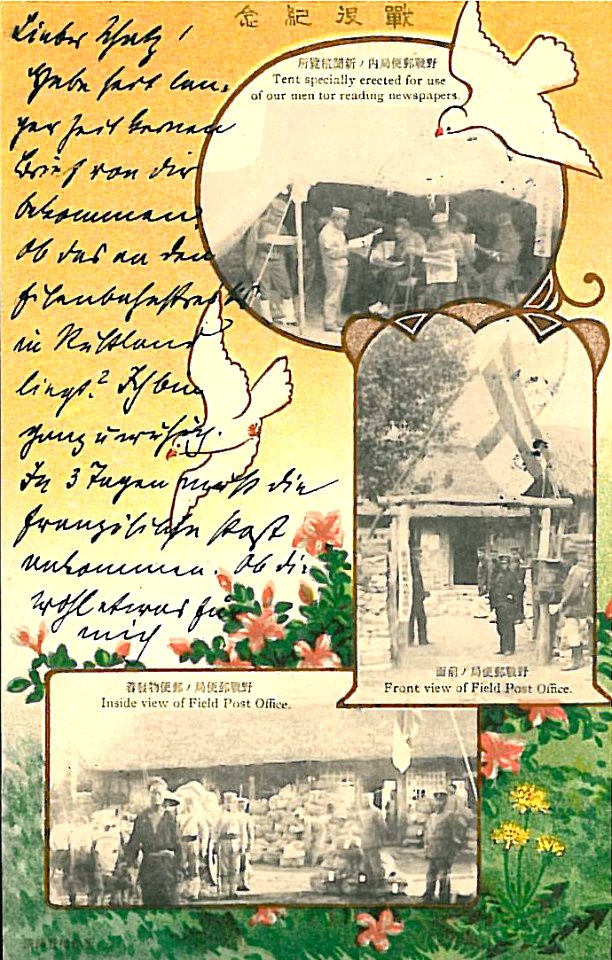 戰役紀念
Lieber Schatz!
Habe seit lan-
ger Zeit keinen
Brief von dir
bekommen.
Ob das an den
Eisenbahnstreiks
in Rußland
liegt? Ich bin
ganz unruhig.
In 3 Tagen muß die
französische Post
ankommen. Ob die
wohl etwas für
mich
野戰郵便局内ノ新聞縱覽所
Tent specially erected for use
of our men for reading newspapers.
野戰郵便局ノ前面
Front view of Field Post Office.
野戰郵便局ノ郵便物發着
Inside view of Field Post Office.